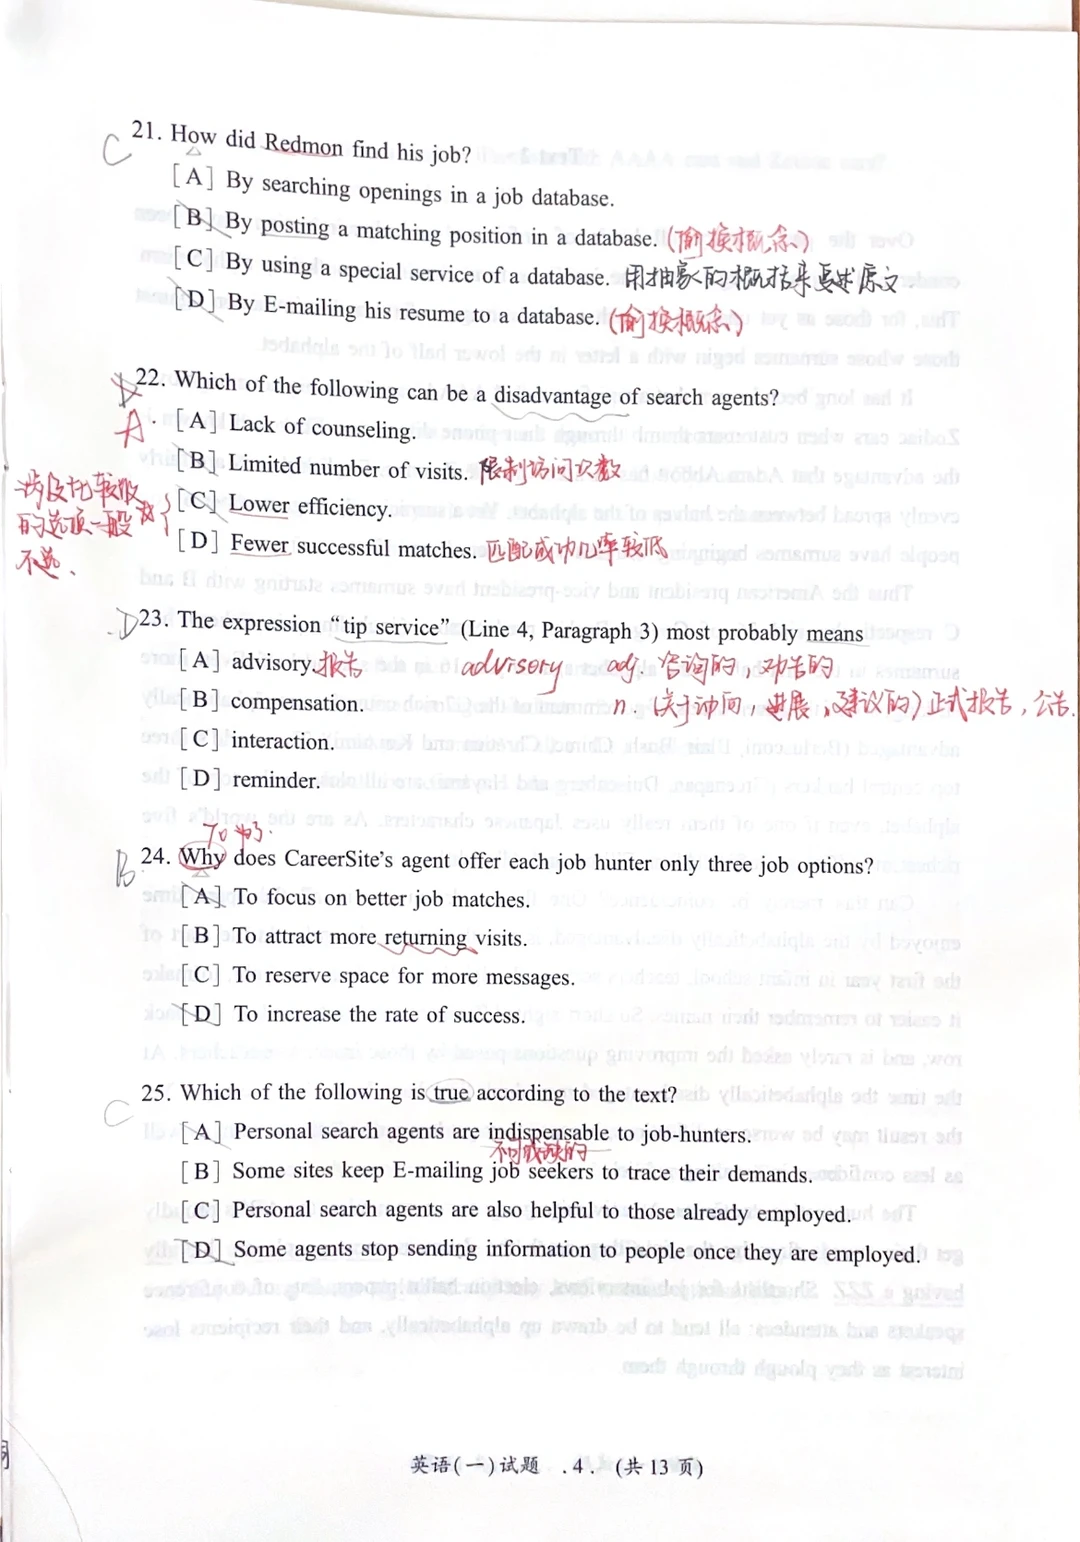 C 21. How did Redmon find his job?
[A] By searching openings in a job database.
[B] By posting a matching position in a database. (偷换概念)
[C] By using a special service of a database. 用抽象的概括来要述原文
[D] By E-mailing his resume to a database. (偷换概念)
D 22. Which of the following can be a disadvantage of search agents?
A. [A] Lack of counseling.
[B] Limited number of visits. 限制访问次数
涉及比较级
[C] Lower efficiency.
的选项一般
[D] Fewer successful matches. 匹配成功几率较低
不选.
D 23. The expression “tip service” (Line 4, Paragraph 3) most probably means
[A] advisory. 报告 advisory adj. 咨询的, 劝告的
[B] compensation. n. (关于冲向, 进展, 建议的) 正式报告, 公告.
[C] interaction.
[D] reminder.
To 为了.
B 24. Why does CareerSite's agent offer each job hunter only three job options?
[A] To focus on better job matches.
[B] To attract more returning visits.
[C] To reserve space for more messages.
[D] To increase the rate of success.
C 25. Which of the following is true according to the text?
[A] Personal search agents are indispensable to job-hunters.
不可或缺的
[B] Some sites keep E-mailing job seekers to trace their demands.
[C] Personal search agents are also helpful to those already employed.
[D] Some agents stop sending information to people once they are employed.
英语(一)试题 .4. (共13页)